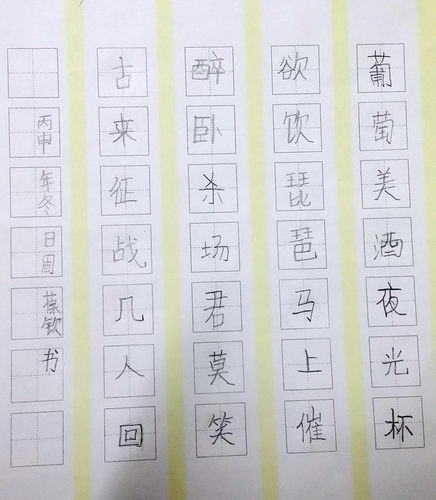 葡萄美酒夜光杯
欲饮琵琶马上催
醉卧杀场君莫笑
古来征战几人回
丙申年冬日周葆钦书